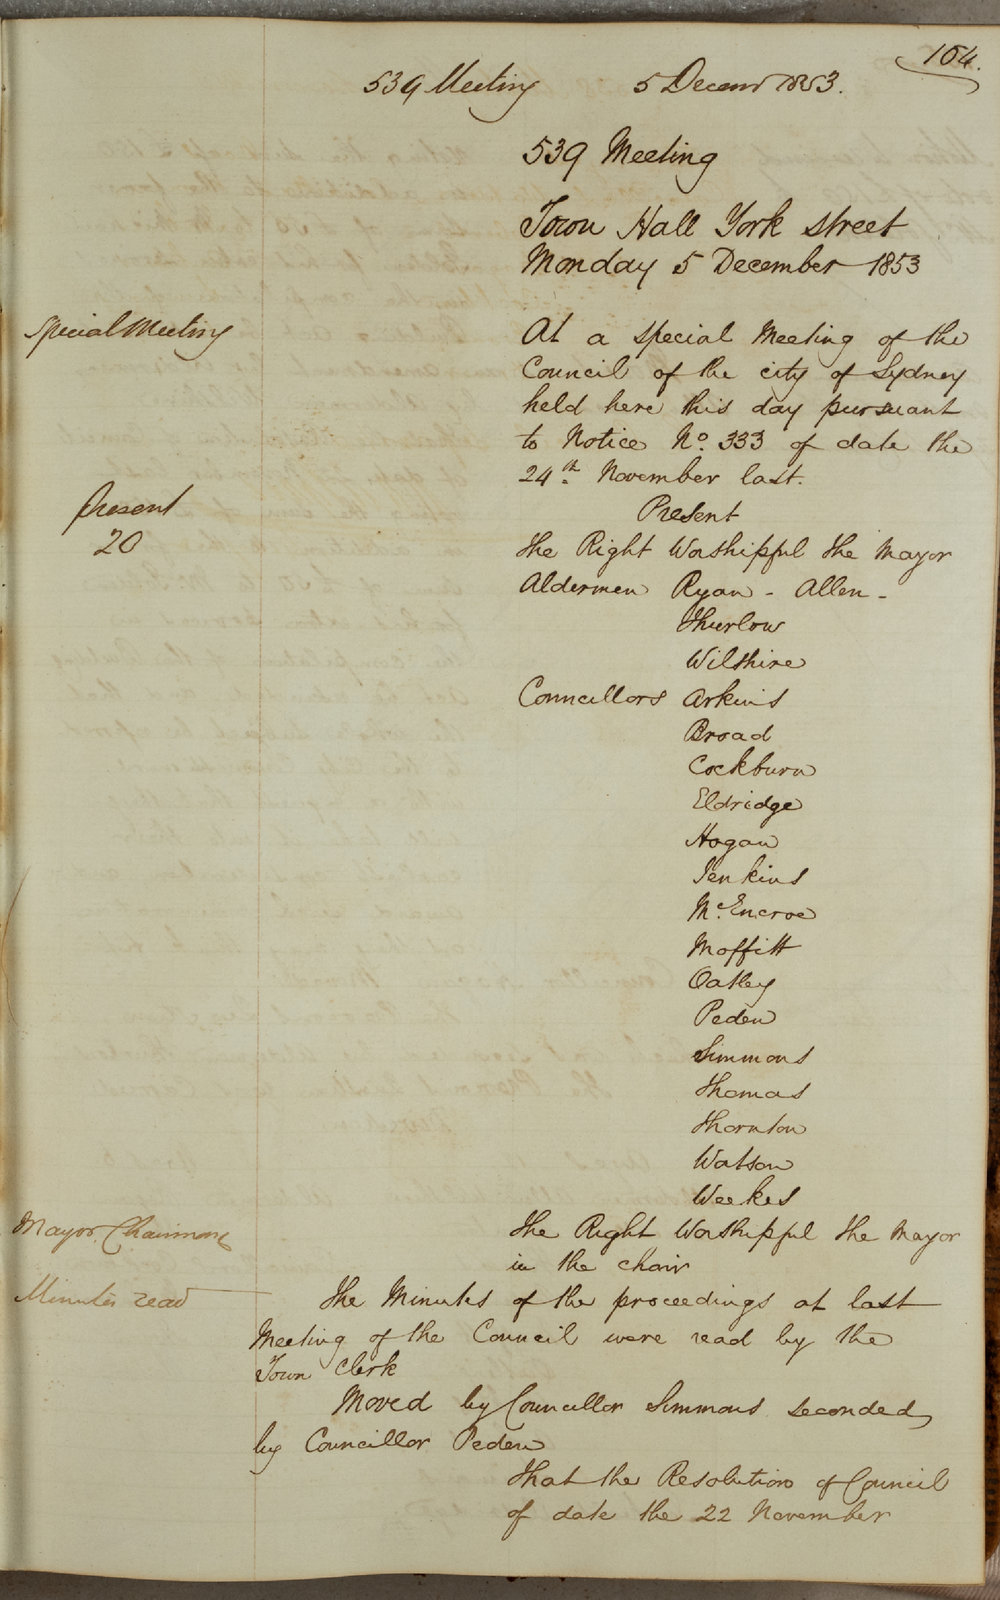 104.
539 Meeting 5 Decemr 1853.
539 Meeting
Town Hall York street
Monday 5 December 1853
Special Meeting
At a special Meeting of the
Council of the city of Sydney
held here this day pursuant
to Notice No. 333 of date the
24th. November last.
Present
20
Present
The Right Worshipful the Mayor
Aldermen Ryan - Allen -
Thurlow
Wilshire
Councillors Arkins
Broad
Cockburn
Eldridge
Hogan
Jenkins
Mc.Encroe
Moffitt
Oatley
Peden
Simmons
Thomas
Thornton
Watson
Weekes
Mayor Chairman
The Right Worshipful the Mayor
in the chair
Minutes read
The Minutes of the proceedings at last
Meeting of the Council were read by the
Town Clerk
Moved by Councillor Simmons seconded
by Councillor Peden
That the Resolution of Council
of date the 22 November